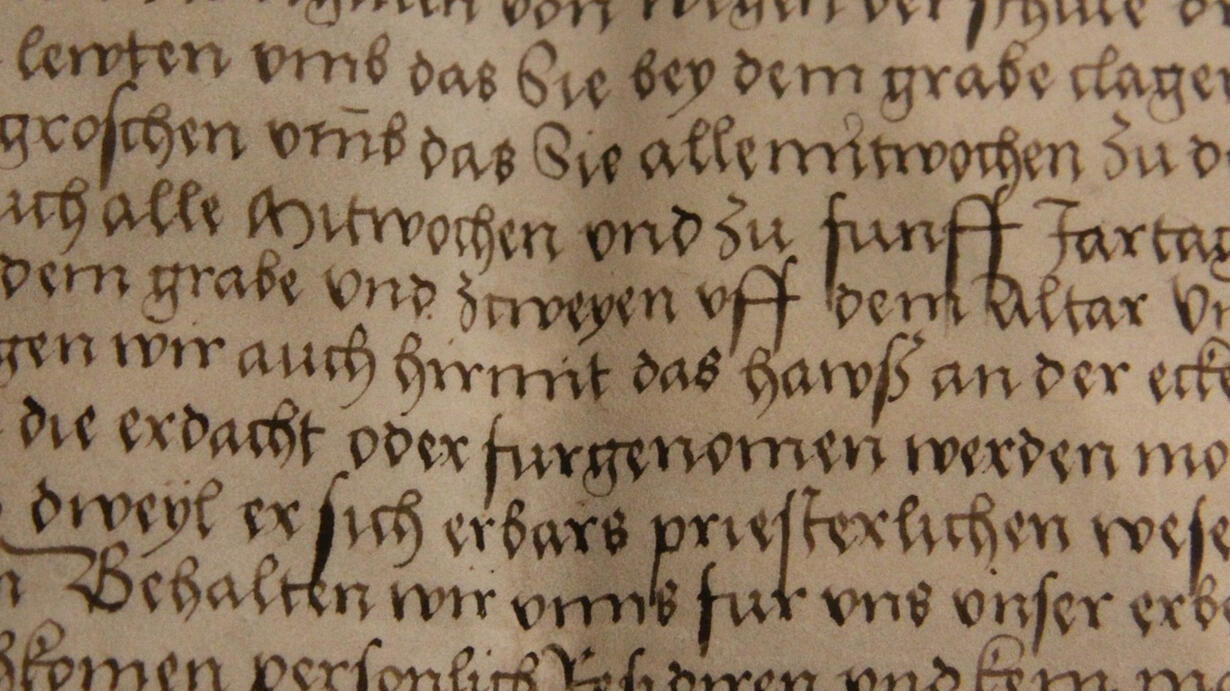 von wegen der schule
lewten vmb das Sie bey dem grabe clagen
groschen vmb das Sie alle mitwochen Zu d
uch alle Mitwochen vnd Zu funff Jartag
dem grabe vnd Zcweyen vff dem Altar Vn
gen wir auch hirmit das hawß an der ecke
die erdacht oder furgenomen werden mo
dweyl er sich erbars priesterlichen wese
n Behalten wir vnns fur vns vnser erb
komen personlich Residiren vnd kein